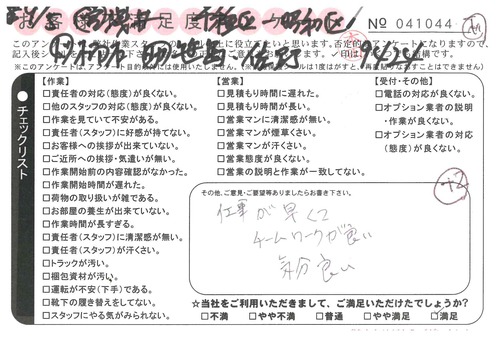 お客様満足度
千種区→昭和区
№ 041044
【作業】
□責任者の対応(態度)が良くない。
□他のスタッフの対応(態度)が良くない。
□作業を見ていて不安がある。
□責任者(スタッフ)に好感が持てない。
□お客様への挨拶が出来ていない。
□ご近所への挨拶・気遣いが無い。
□作業開始前の内容確認がなかった。
□作業開始時間が遅れた。
□荷物の取り扱いが雑である。
□お部屋の養生が出来ていない。
□作業時間が長すぎる。
□責任者(スタッフ)に清潔感が無い。
□責任者(スタッフ)が汗くさい。
□トラックが汚い。
□梱包資材が汚い。
□運転が不安(下手)である。
□靴下の履き替えをしてない。
□スタッフにやる気がみられない。
チェックリスト
【営業】
□見積もり時間に遅れた。
□見積もり時間が長い。
□営業マンに清潔感が無い。
□営業マンが煙草くさい。
□営業マンが汗くさい。
□営業態度が良くない。
□営業の説明と作業が一致してない。
【受付・その他】
□電話の対応が良くない。
□オプション業者の説明
・作業が良くない。
□オプション業者の対応
(態度)が良くない。
+2
その他、ご意見・ご要望等ありましたらお書き下さい。
仕事が早くて
チームワークが良い
気分良い
☆当社をご利用いただきまして、ご満足いただけたでしょうか?
□不満 □やや不満 □普通 □やや満足 ☑満足